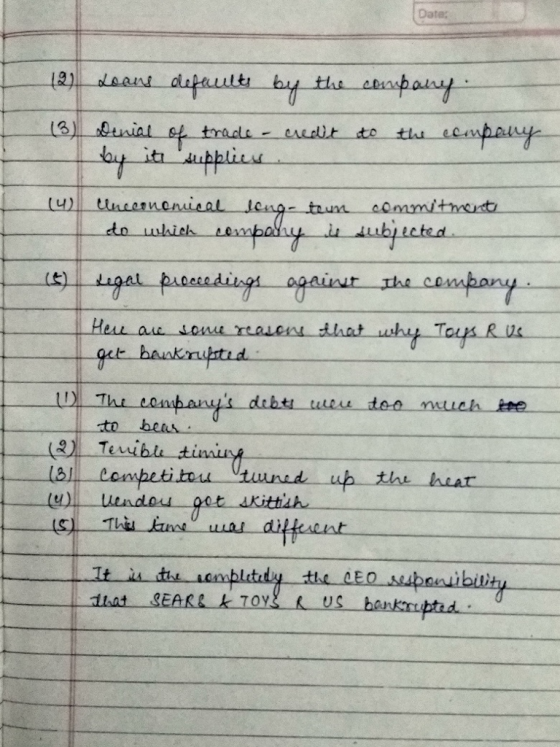 Date:
(2) Loans defaults by the company.
(3) Denial of trade - credit to the company
by its suppliers.
(4) Uneconomical long-term commitments
to which company is subjected.
(5) Legal proceedings against the company.
Here are some reasons that why Toys R Us
get bankrupted.
(1) The company's debts were too much too
to bear.
(2) Terrible timing
(3) Competitors turned up the heat
(4) Vendors got skittish
(5) This time was different
It is the completely the CEO responsibility
that SEARS & TOYS R US bankrupted.